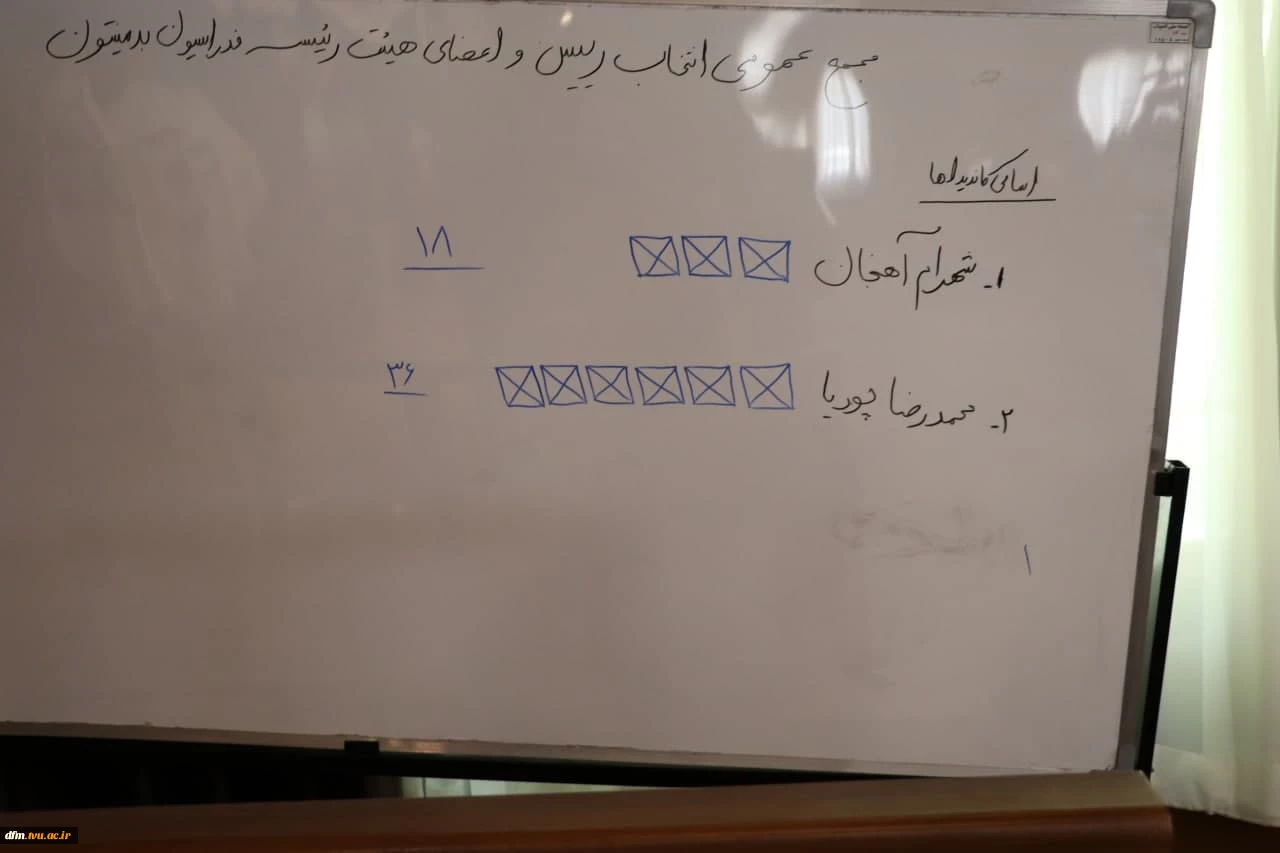 مجمع عمومی انتخاب رییس و اعضای هیئت رئیسه فدراسیون بدمینتون
اسامی کاندیداها
۱- شهرام آهنجان ۱۸
۲- محمدرضا پوریا ۳۶
۱
dfm.tvu.ac.ir